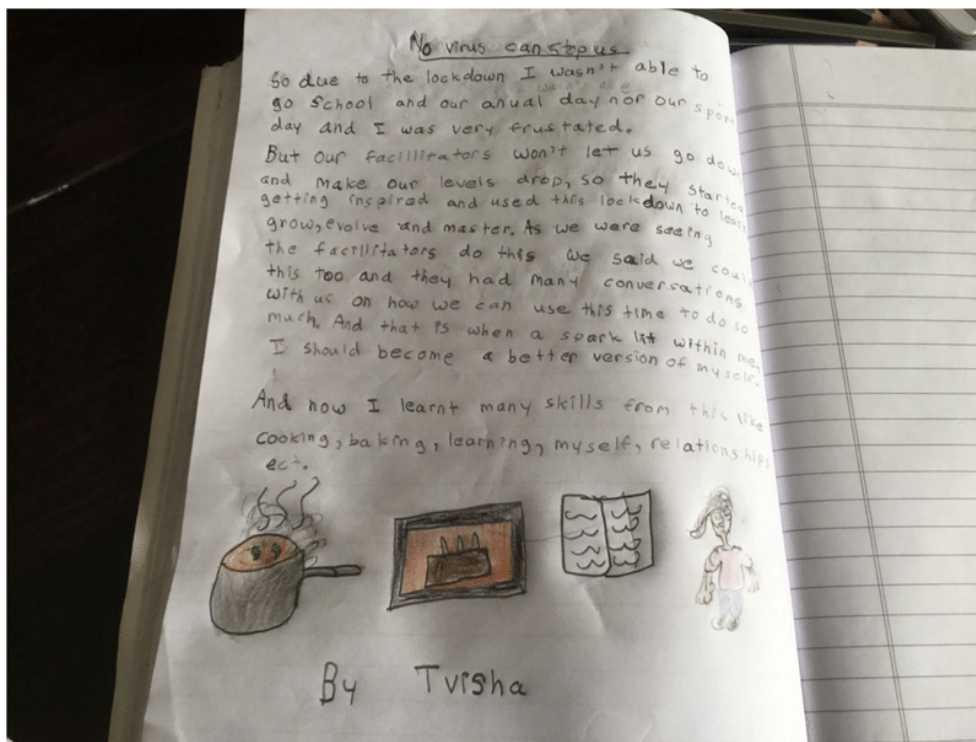 No virus can stop us
So due to the lockdown I wasn't able to
go School and our anual day nor our sport
day and I was very frustrated.
But our facillitators won't let us go down
and make our levels drop, so they started
getting inspired and used this lockdown to learn
grow, evolve and master. As we were seeing
the facillitators do this we said we could
this too and they had many conversations
with us on how we can use this time to do so
much. And that is when a spark lit within me,
I should become a better version of myself.
And now I learnt many skills from this like
cooking, baking, learning, myself, relationships
ect.
By Tvisha